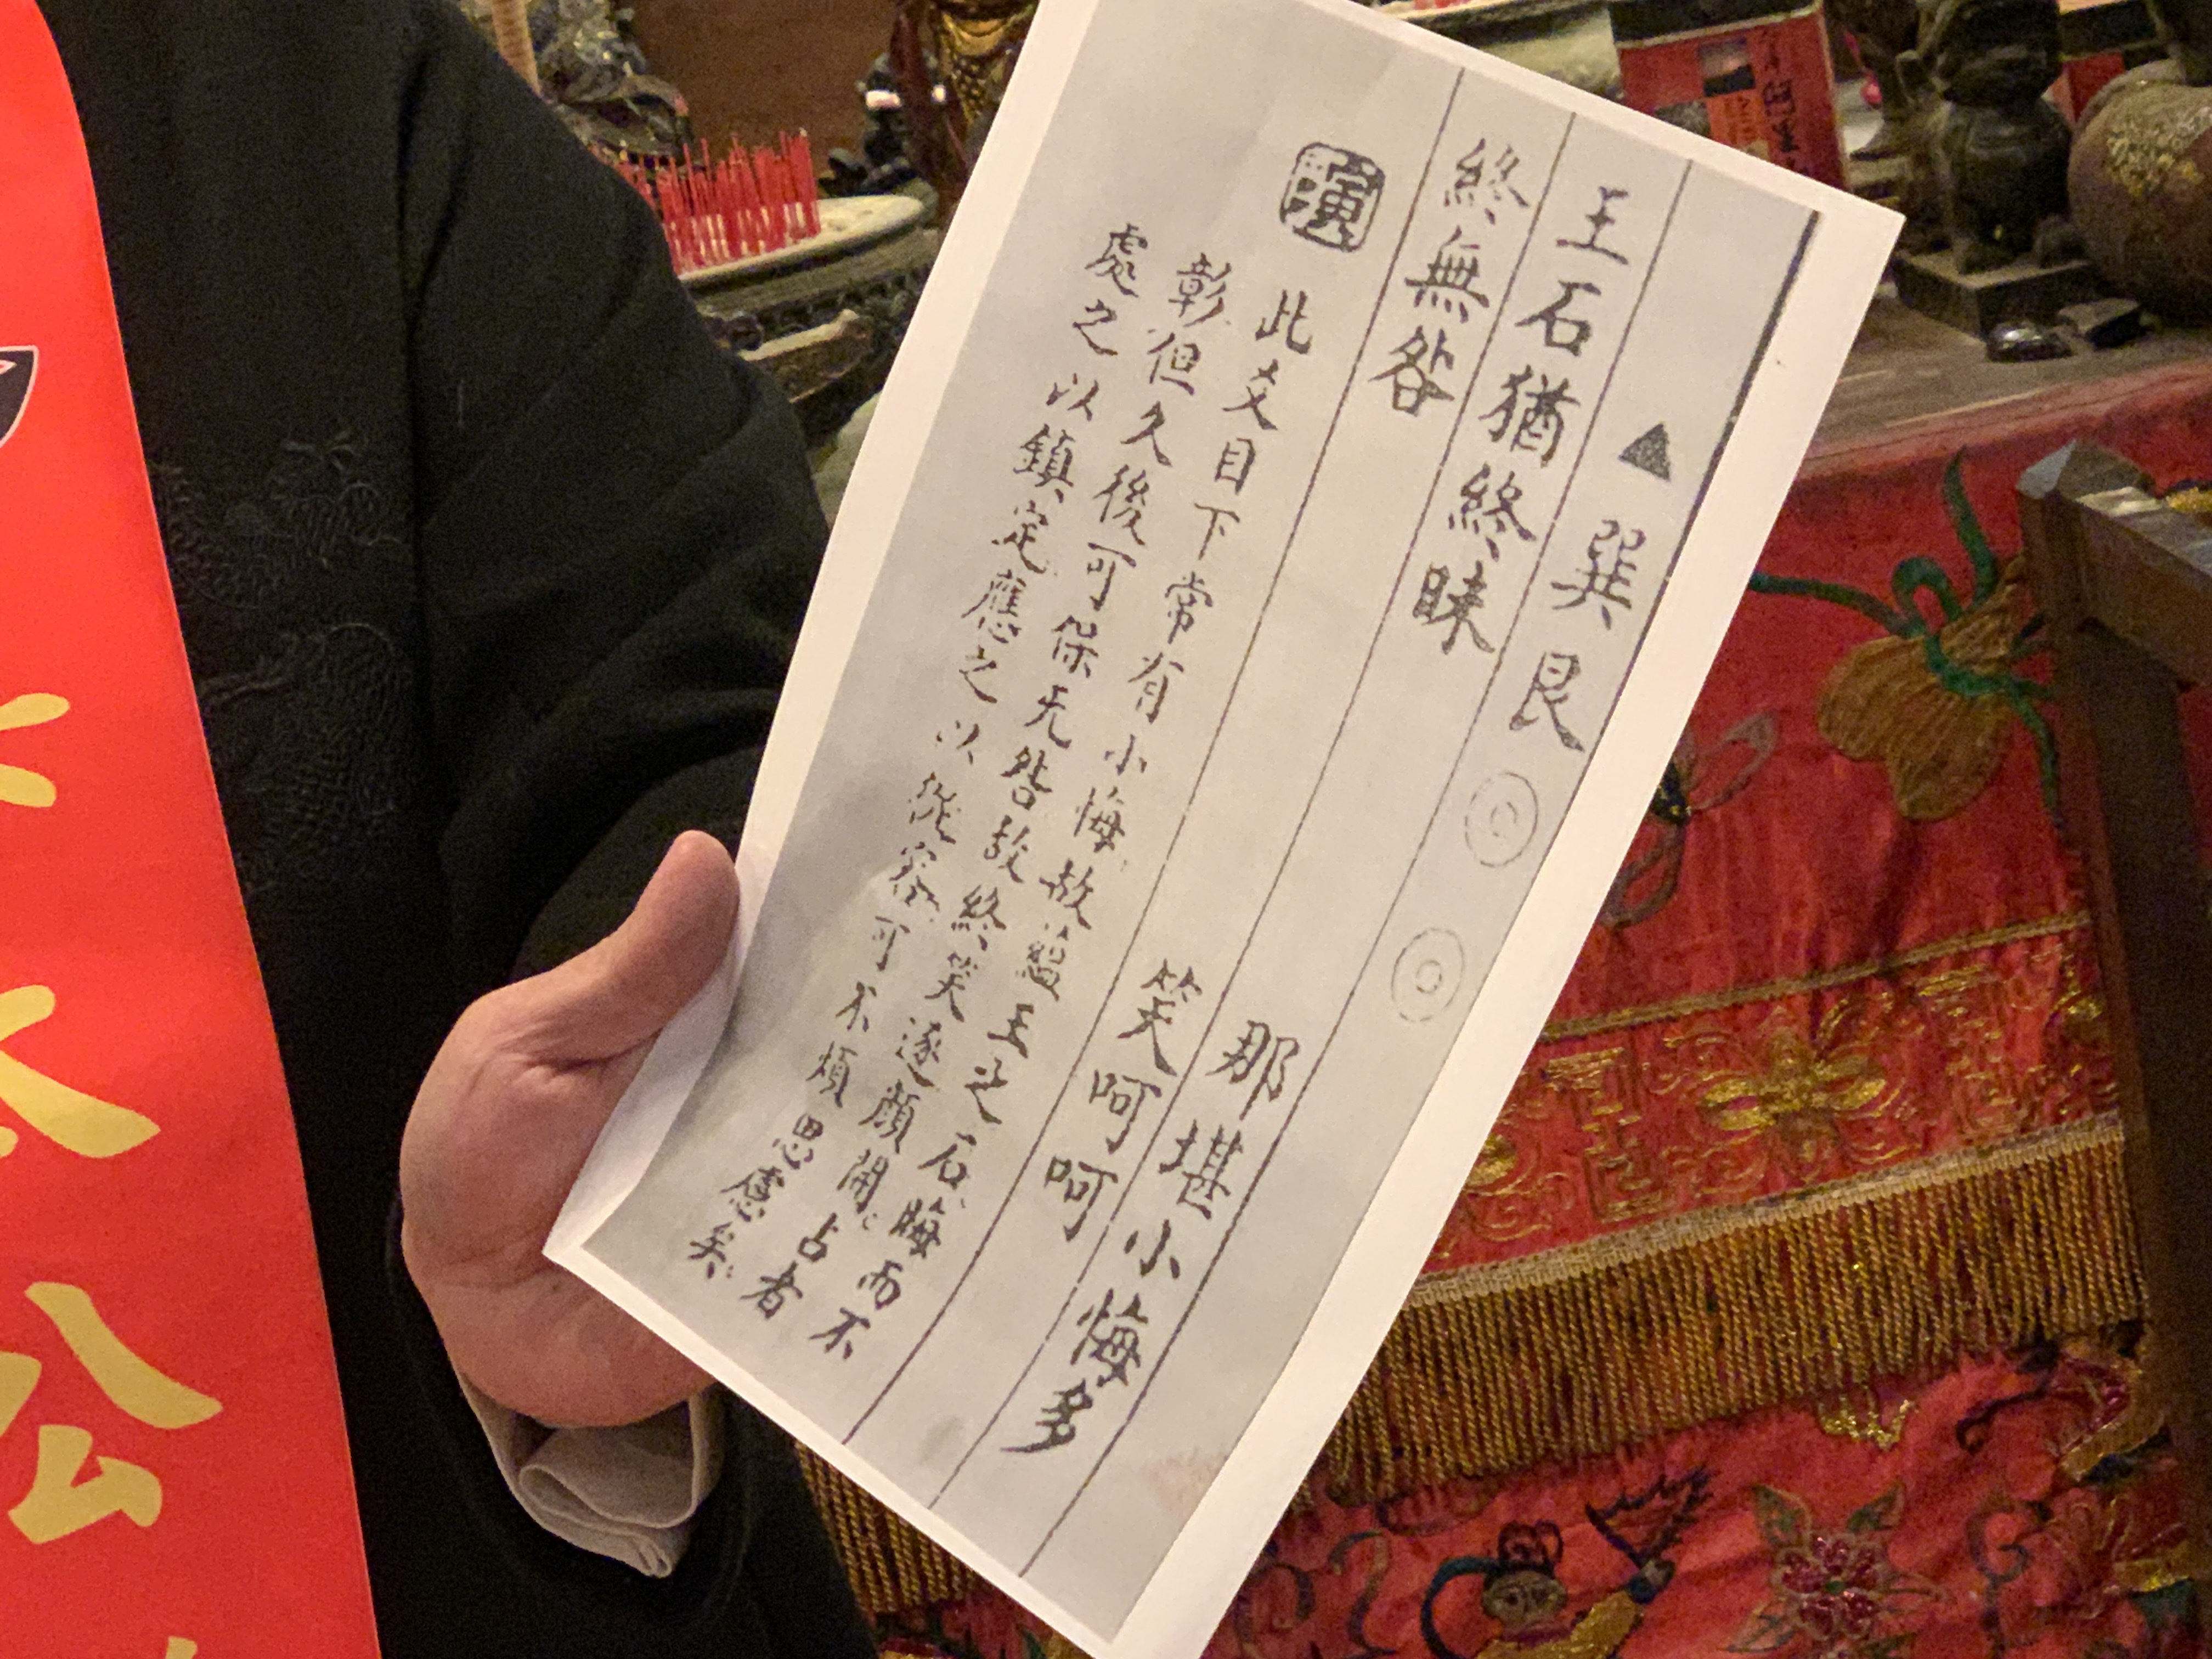 ▲ 巽艮 ◎ ◎
王石猶終昧 那堪小悔多
終無咎 笑呵呵
演 此爻目下常有小悔故藴王之石晦而不
彰但久後可保无咎故終笑逐顏開占者
處之以鎮定應之以從容可不煩思慮矣
公